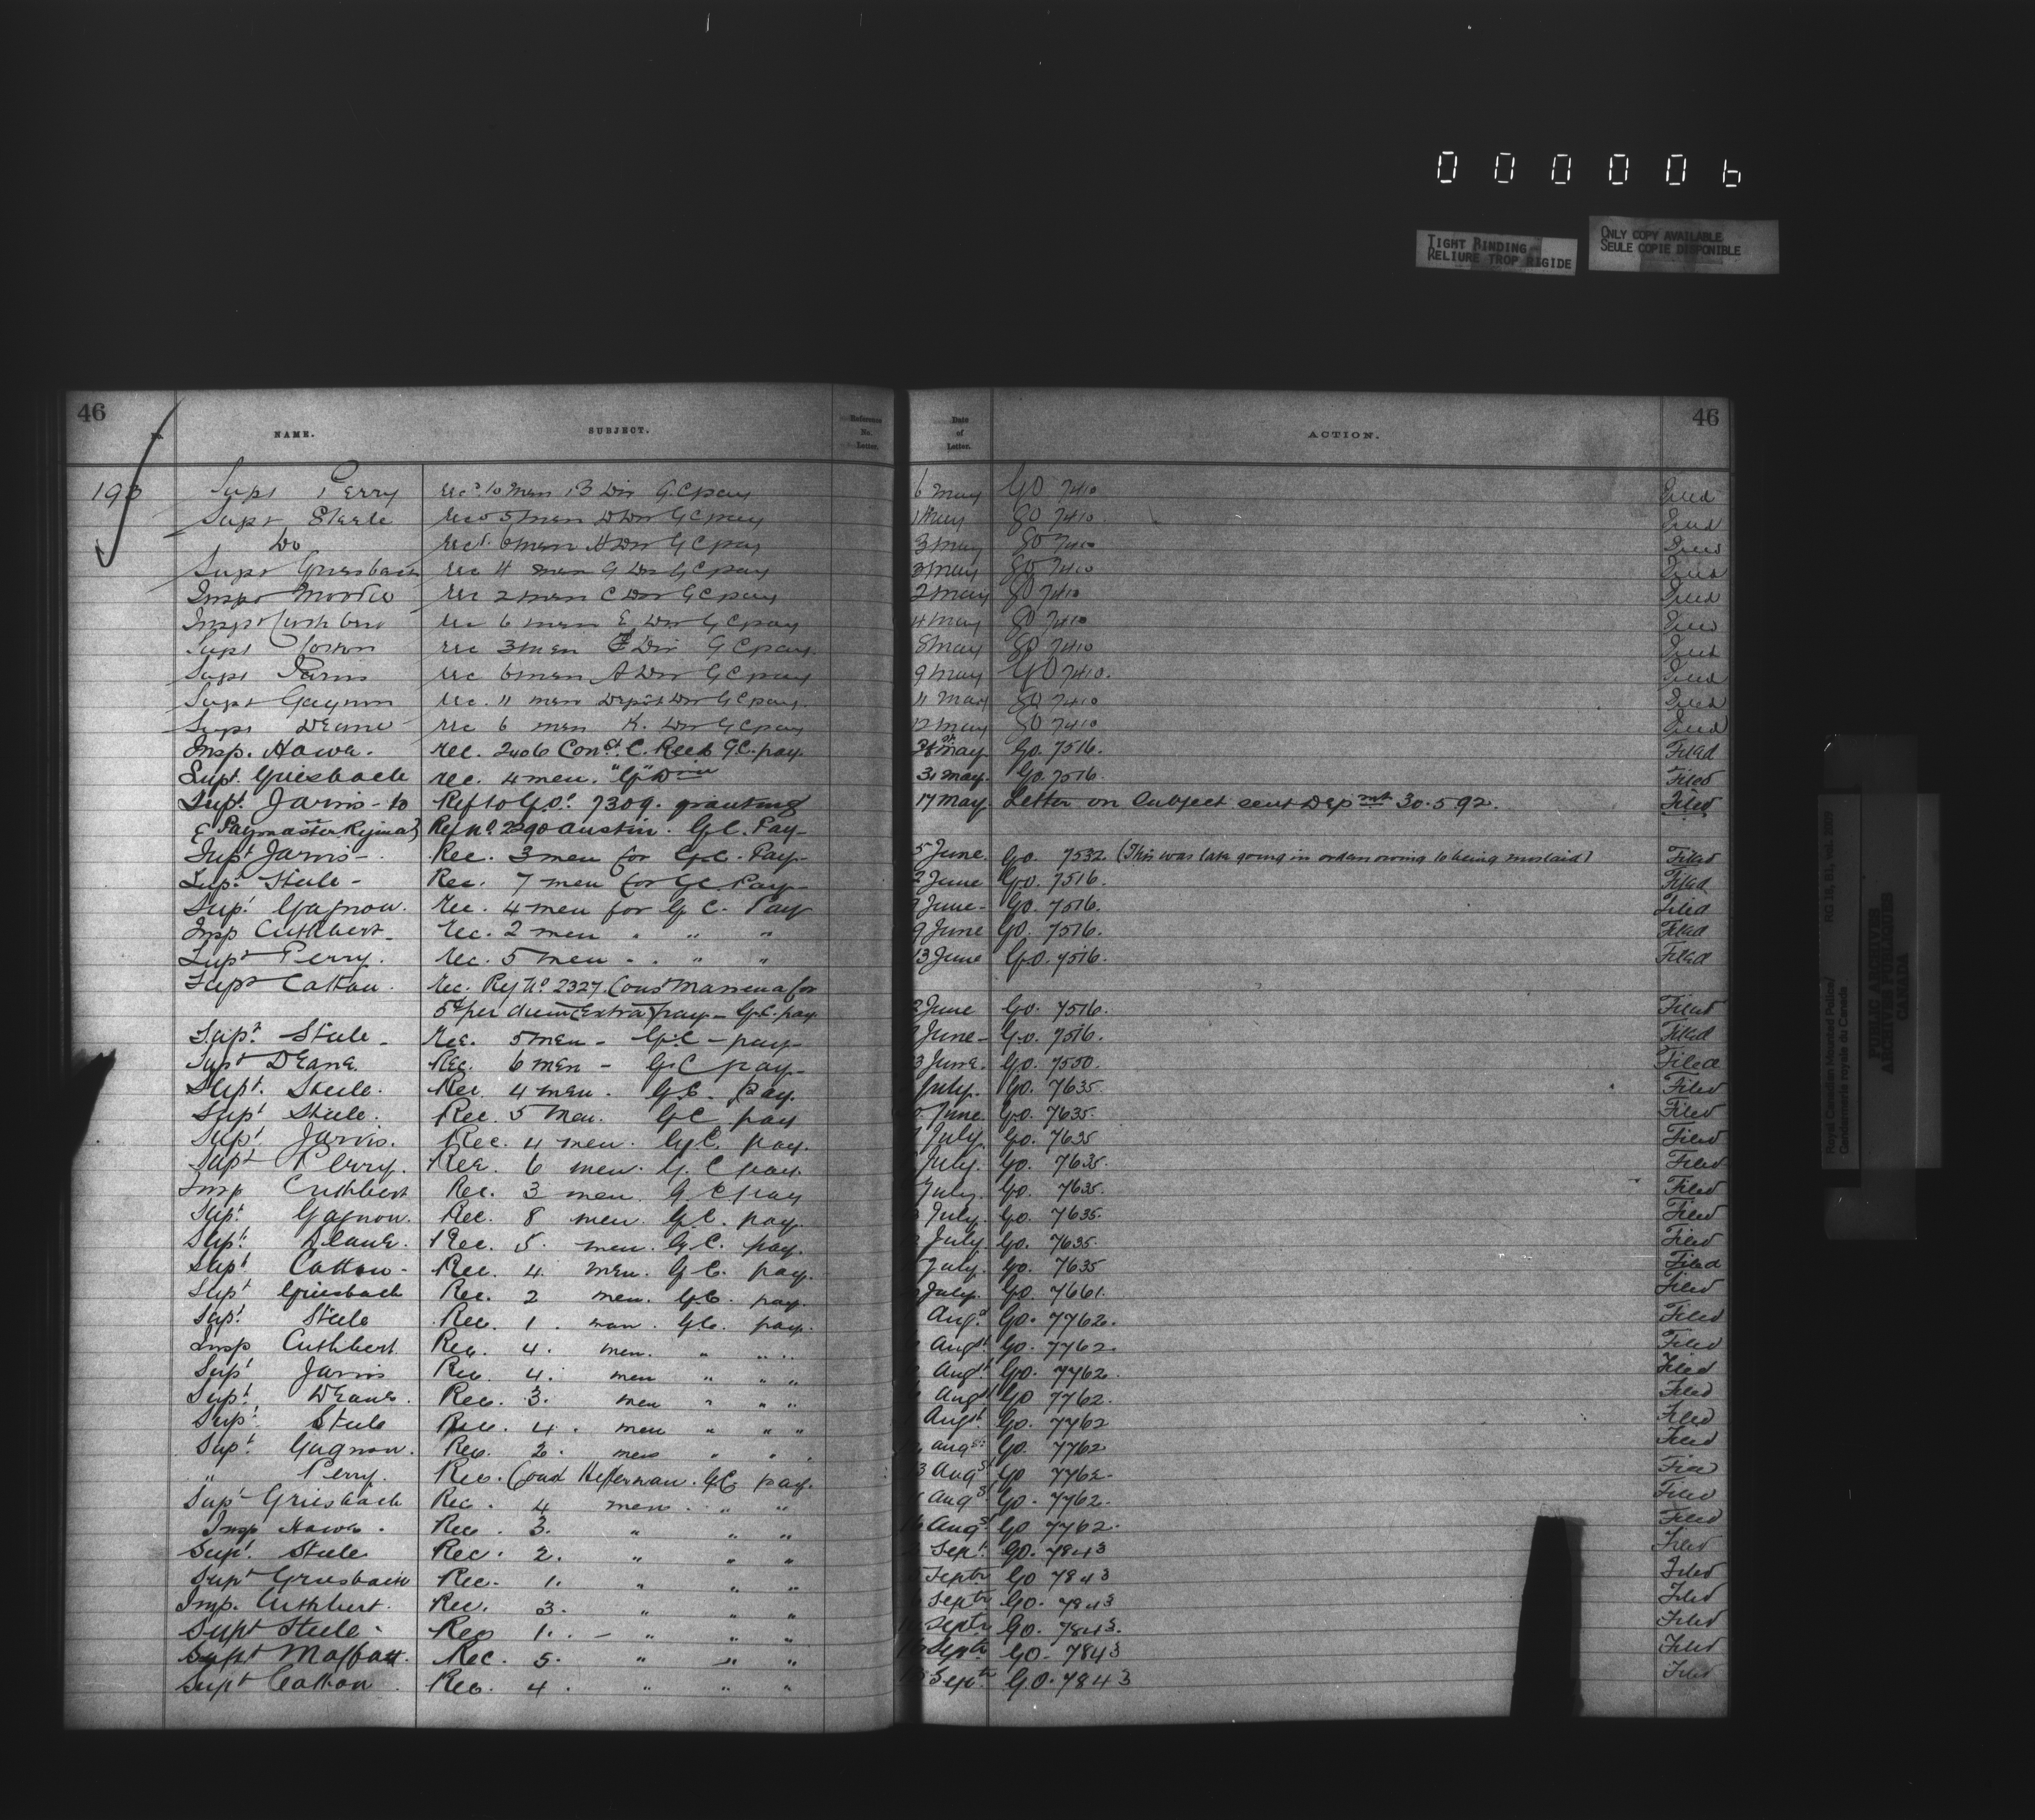 000006
TIGHT BINDING
RELIURE TROP RIGIDE
ONLY COPY AVAILABLE
SEULE COPIE DISPONIBLE
46 46
NAME. SUBJECT. Reference No. Letter. Date of Letter. ACTION.
193 Supt Perry recd 10 men B Div G.C pay 6 May GO 7410 Filed
Supt Steele 5 men D Div G C pay May GO 7410. Filed
Do recd. 6 men H Div G C pay 3 May GO 7410 Filed
Supt Griesbach rec 4 men G Div G C pay May GO 7410 Filed
Inspr Moodie rec 2 men C Div G C pay 2 May GO 7410 Filed
Inspr Cuthbert rec 6 men E Div G C pay 4 May GO 7410 Filed
Supt Cotton rec 3 men Div G C pay. 8 May GO 7410 Filed
Supt Jarvis rec 6 men A Div G C pay 9 May GO 7410. Filed
Supt Gagnon rec. 11 men Depôt Div G C pay. 11 May GO 7410 Filed
Supt Deane rec 6 men K. Div G C pay 12 May GO 7410 Filed
Insp. Howe. rec. 2406 Const. C. G.C. pay. May Go. 7516. Filed
Supt. Griesbach rec. 4 men. "G" Divn 31 May. Go. 7516. Filed
Supt. Jarvis - to Ref to GO. 7309. granting 17 May Letter on Subject sent Depmt 30.5.92. Filed
Paymaster Regina Regno 2290 Austin. G.C. Pay-
Supt Jarvis - . Rec. 3 men for G.C. Pay- 5 June. Go. 7532. (This was late going in orders owing to being mislaid) Filed
Supt. Steele - Rec. 7 men for G.C. Pay- 2 June Go. 7516. Filed
Supt. Gagnon. Rec. 4 men for G C. Pay June - Go. 7516. Filed
Insp Cuthbert - Rec. 2 men " " " 9 June Go. 7516. Filed
Supt Perry. Rec. 5 men - . " " 13 June G.O. 7516. Filed
Supt Cotton. rec. Reg No. 2327. Const for
5¢ per diem (Extra) pay - G.C. pay. 2 June Go. 7516. Filed
Supt. Steele - Rec. 5 men - G.C - pay - June - Go. 7516. Filed
Supt Deane. Rec. 6 men - G.C pay - 3 June. Go. 7550. Filed
Supt. Steele. Rec 4 men. G.C. pay. July. Go. 7635. Filed
Supt Steele. Rec. 5 men. G C pay June. Go. 7635. Filed
Supt. Jarvis. Rec. 4 men. G.C. pay. July. Go. 7635 Filed
Supt Perry. Rec. 6 men. G. C pay. July. Go. 7635. Filed
Insp Cuthbert Rec. 3 men. G. C pay July. Go. 7635. Filed
Supt. Gagnon. Rec. 8 men. G.C. pay. July. Go. 7635. Filed
Supt. Deane. Rec. 5. men. G.C. pay. July. Go. 7635. Filed
Supt Cotton - Rec. 4. men. G.C. pay. July. Go. 7635 Filed
Supt Griesbach Rec. 2 men. G.C. pay. July. Go. 7661. Filed
Supt. Steele Rec. 1. man. G.C. pay. Augt. Go. 7762. Filed
Insp Cuthbert. Rec. 4. men. " " . Augst Go. 7762. Filed
Supt Jarvis Rec. 4. men " " " Augst Go. 7762. Filed
Supt. Deane. Rec. 3. men " " " Augst Go 7762. Filed
Supt. Steele Rec. 4. men " " " Augst. Go. 7762 Filed
Supt. Gagnon. Rec. 2. men " " . augst Go. 7762 Filed
" Perry. Rec. Const Heffernan. G.C pay. 3 Augst Go 7762. Filed
Supt Griesbach Rec. 4 men. " " Augst Go. 7762. Filed
Insp Howe. Rec. 3. " " " Augst Go 7762. Filed
Supt. Steele Rec. 2. " " " Sept. Go. 7843 Filed
Supt Griesbach Rec. 1. " " " Septr Go 7843 Filed
Insp. Cuthbert. Rec. 3. " " " Septr Go. 7843 Filed
Supt Steele - Rec 1. - " " " Septr Go. 7843. Filed
Supt Moffatt. Rec. 5. " " " Septr Go. 7843 Filed
Supt Cotton. Rec. 4. " " " Septr G.O. 7843 Filed
Royal Canadian Mounted Police/
Gendarmerie royale du Canada
PUBLIC ARCHIVES
ARCHIVES PUBLIQUES
CANADA